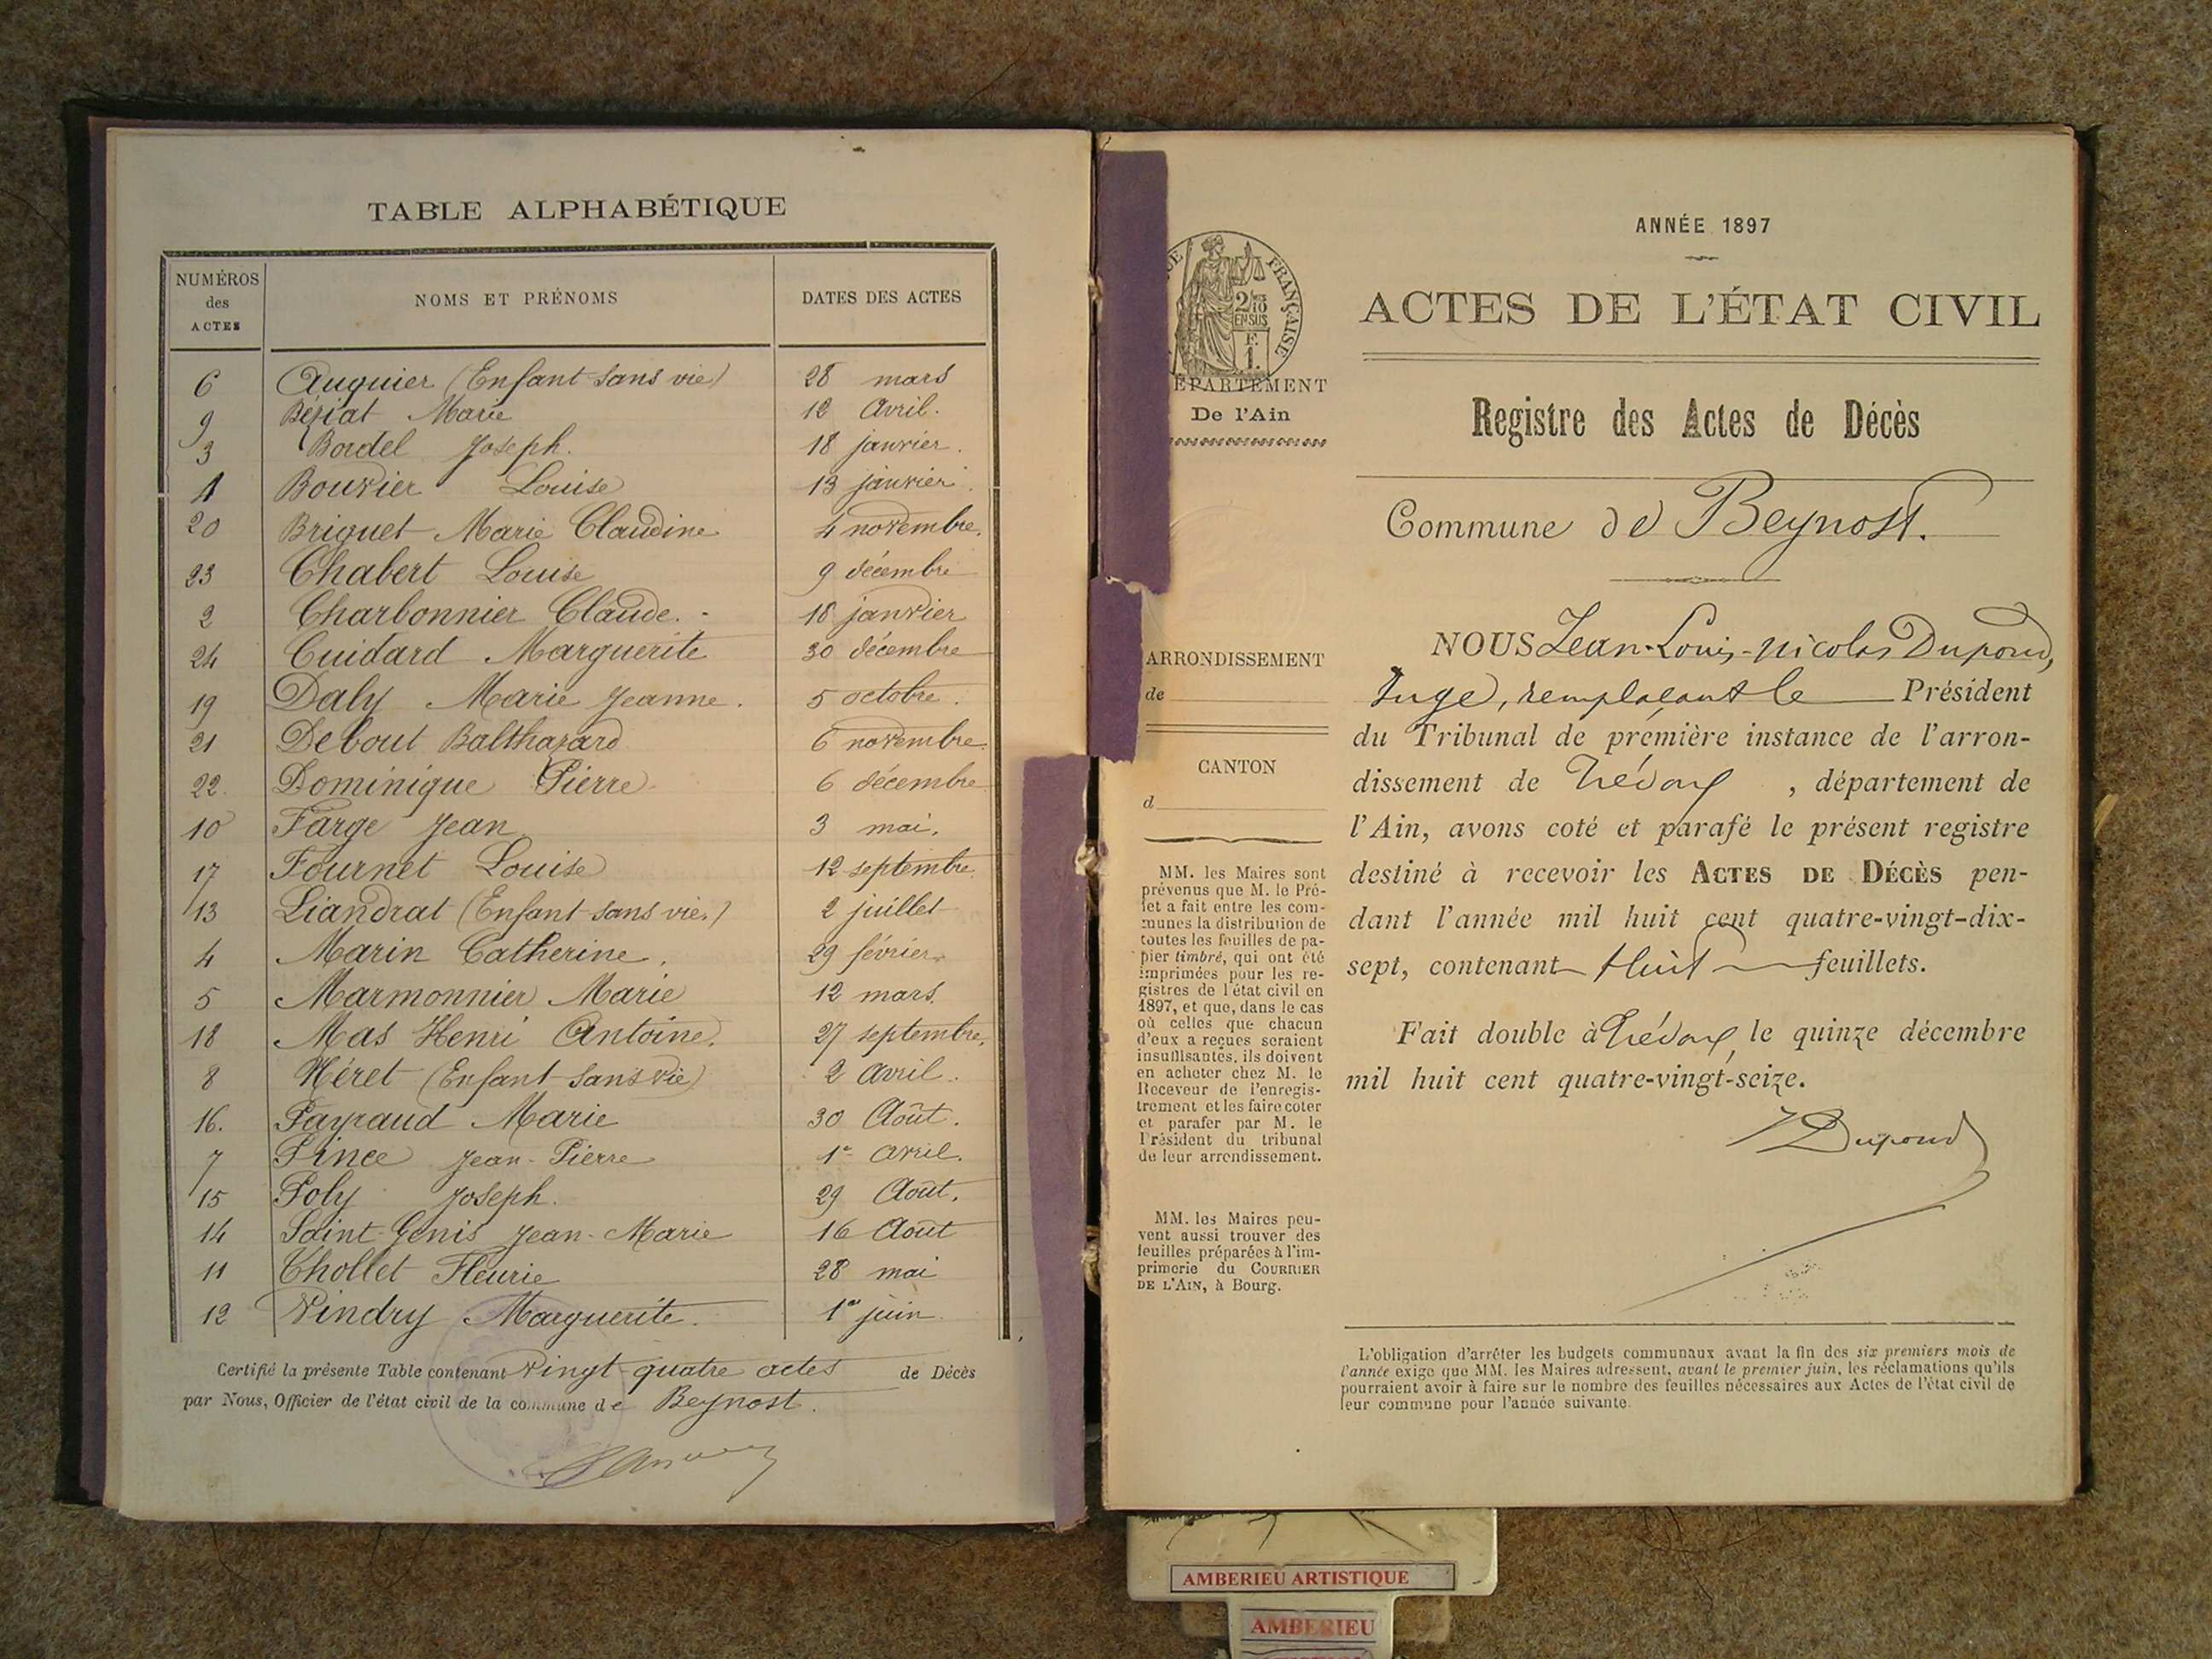 TABLE ALPHABÉTIQUE
NUMÉROS des ACTES NOMS ET PRÉNOMS DATES DES ACTES
6 Auguier (Enfant sans vie) 28 mars
9 Béziat Marie 12 Avril.
3 Bordel Joseph. 18 janvier.
1 Bouvier Louise 13 janvier.
20 Briquet Marie Claudine 4 novembre.
23 Chabert Louise 9 décembre
2 Charbonnier Claude. 18 janvier
24 Cuidard Marguerite 30 décembre
19 Daly Marie Jeanne. 5 octobre.
21 Debout Balthazard 6 novembre.
22. Dominique Pierre 6 décembre
10 Farge Jean 3 mai.
17 Fournet Louise 12 septembre.
13 Liandrat (Enfant sans vie.) 2 juillet
4 Marin Catherine. 29 février.
5 Marmonnier Marie 12 mars.
18 Mas Henri Antoine. 27 septembre.
8 Méret (Enfant sans vie) 2 avril.
16. Payraud Marie 30 Août.
7 Pince Jean-Pierre 1er avril.
15 Poly Joseph. 29 Août.
14 Saint-Genis Jean-Marie 16 Août
11 Thollet Fleurie 28 mai
12 Vindry Marguerite. 1er juin.
Certifié la présente Table contenant vingt-quatre actes de Décès
par Nous, Officier de l'état civil de la commune de Beynost.
FRANÇAISE
2/10
EN SUS
F.
1.
ÉPARTEMENT
De l'Ain
ARRONDISSEMENT
de
CANTON
d
MM. les Maires sont
prévenus que M. le Pré-
fet a fait entre les com-
munes la distribution de
toutes les feuilles de pa-
pier timbré, qui ont été
imprimées pour les re-
gistres de l'état civil en
1897, et que, dans le cas
où celles que chacun
d'eux a reçues seraient
insuffisantes, ils doivent
en acheter chez M. le
Receveur de l'enregis-
trement et les faire coter
et parafer par M. le
Président du tribunal
de leur arrondissement.
MM. les Maires peu-
vent aussi trouver des
feuilles préparées à l'im-
primerie du COURRIER
DE L'AIN, à Bourg.
ANNÉE 1897
ACTES DE L'ÉTAT CIVIL
Registre des Actes de Décès
Commune de Beynost.
NOUS Jean-Louis-Nicolas Dupond,
Juge, remplaçant le Président
du Tribunal de première instance de l'arron-
dissement de Trévoux, département de
l'Ain, avons coté et parafé le présent registre
destiné à recevoir les ACTES DE DÉCÈS pen-
dant l'année mil huit cent quatre-vingt-dix-
sept, contenant huit feuillets.
Fait double à Trévoux, le quinze décembre
mil huit cent quatre-vingt-seize.
Dupond
L'obligation d'arrêter les budgets communaux avant la fin des six premiers mois de
l'année exige que MM. les Maires adressent, avant le premier juin, les réclamations qu'ils
pourraient avoir à faire sur le nombre des feuilles nécessaires aux Actes de l'état civil de
leur commune pour l'année suivante.
AMBERIEU ARTISTIQUE
AMBERIEU